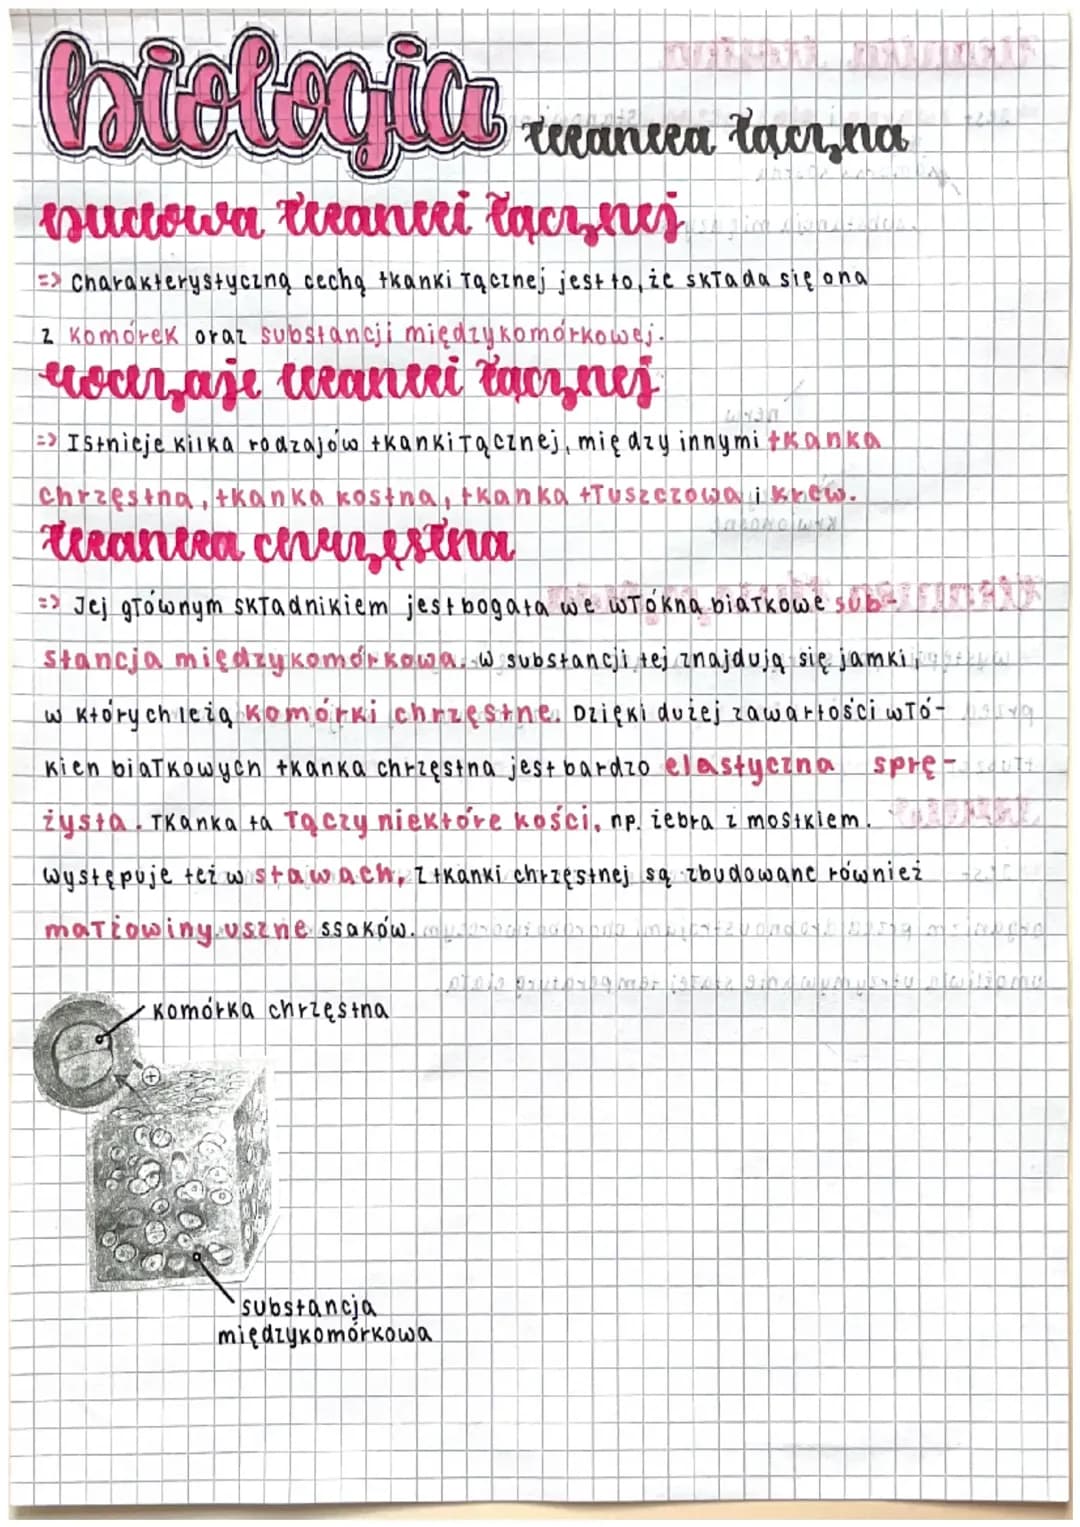 biologia tkanka łączna
budowa tkanki łącznej
=> Charakterystyczną cechą tkanki łącznej jest to, że składa się ona
z komórek oraz substancji międzykomórkowej.
rodzaje tkanki łącznej
=> Istnieje kilka rodzajów tkanki łącznej, między innymi tkanka
chrzęstna, tkanka kostna, tkanka tłuszczowa i krew.
tkanka chrzęstna
=> Jej głównym składnikiem jest bogata we włókna białkowe sub-
stancja międzykomórkowa. W substancji tej znajdują się jamki,
w których leżą komórki chrzęstne. Dzięki dużej zawartości włó-
kien białkowych tkanka chrzęstna jest bardzo elastyczna sprę-
żysta. Tkanka ta łączy niektóre kości, np. żebra z mostkiem.
Występuje też w stawach, z tkanki chrzęstnej są zbudowane również
małżowiny uszne ssaków.
komórka chrzęstna
substancja
międzykomórkowa